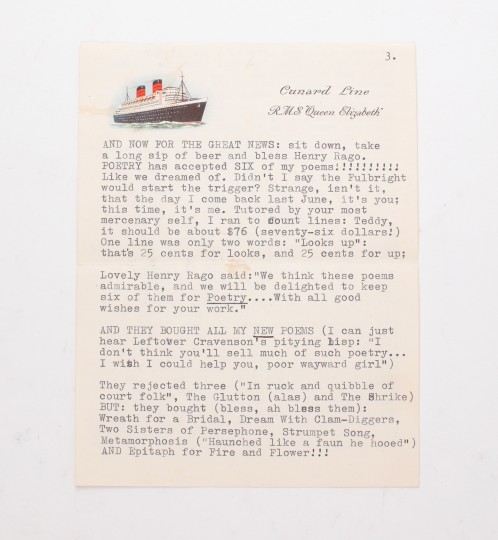 3.
Cunard Line
R.M.S "Queen Elizabeth"
AND NOW FOR THE GREAT NEWS: sit down, take
a long sip of beer and bless Henry Rago.
POETRY has accepted SIX of my poems!!!!!!!!!!
Like we dreamed of. Didn't I say the Fulbright
would start the trigger? Strange, isn't it,
that the day I come back last June, it's you;
this time, it's me. Tutored by your most
mercenary self, I ran to count lines: Teddy,
it should be about $76 (seventy-six dollars!)
One line was only two words: "Looks up":
that's 25 cents for looks, and 25 cents for up;
Lovely Henry Rago said:"We think these poems
admirable, and we will be delighted to keep
six of them for Poetry....With all good
wishes for your work."
AND THEY BOUGHT ALL MY NEW POEMS (I can just
hear Leftover Cravenson's pitying lisp: "I
don't think you'll sell much of such poetry...
I wish I could help you, poor wayward girl")
They rejected three ("In ruck and quibble of
court folk", The Glutton (alas) and The Shrike)
BUT: they bought (bless, ah bless them):
Wreath for a Bridal, Dream With Clam-Diggers,
Two Sisters of Persephone, Strumpet Song,
Metamorphosis ("Haunched like a faun he hooed")
AND Epitaph for Fire and Flower!!!